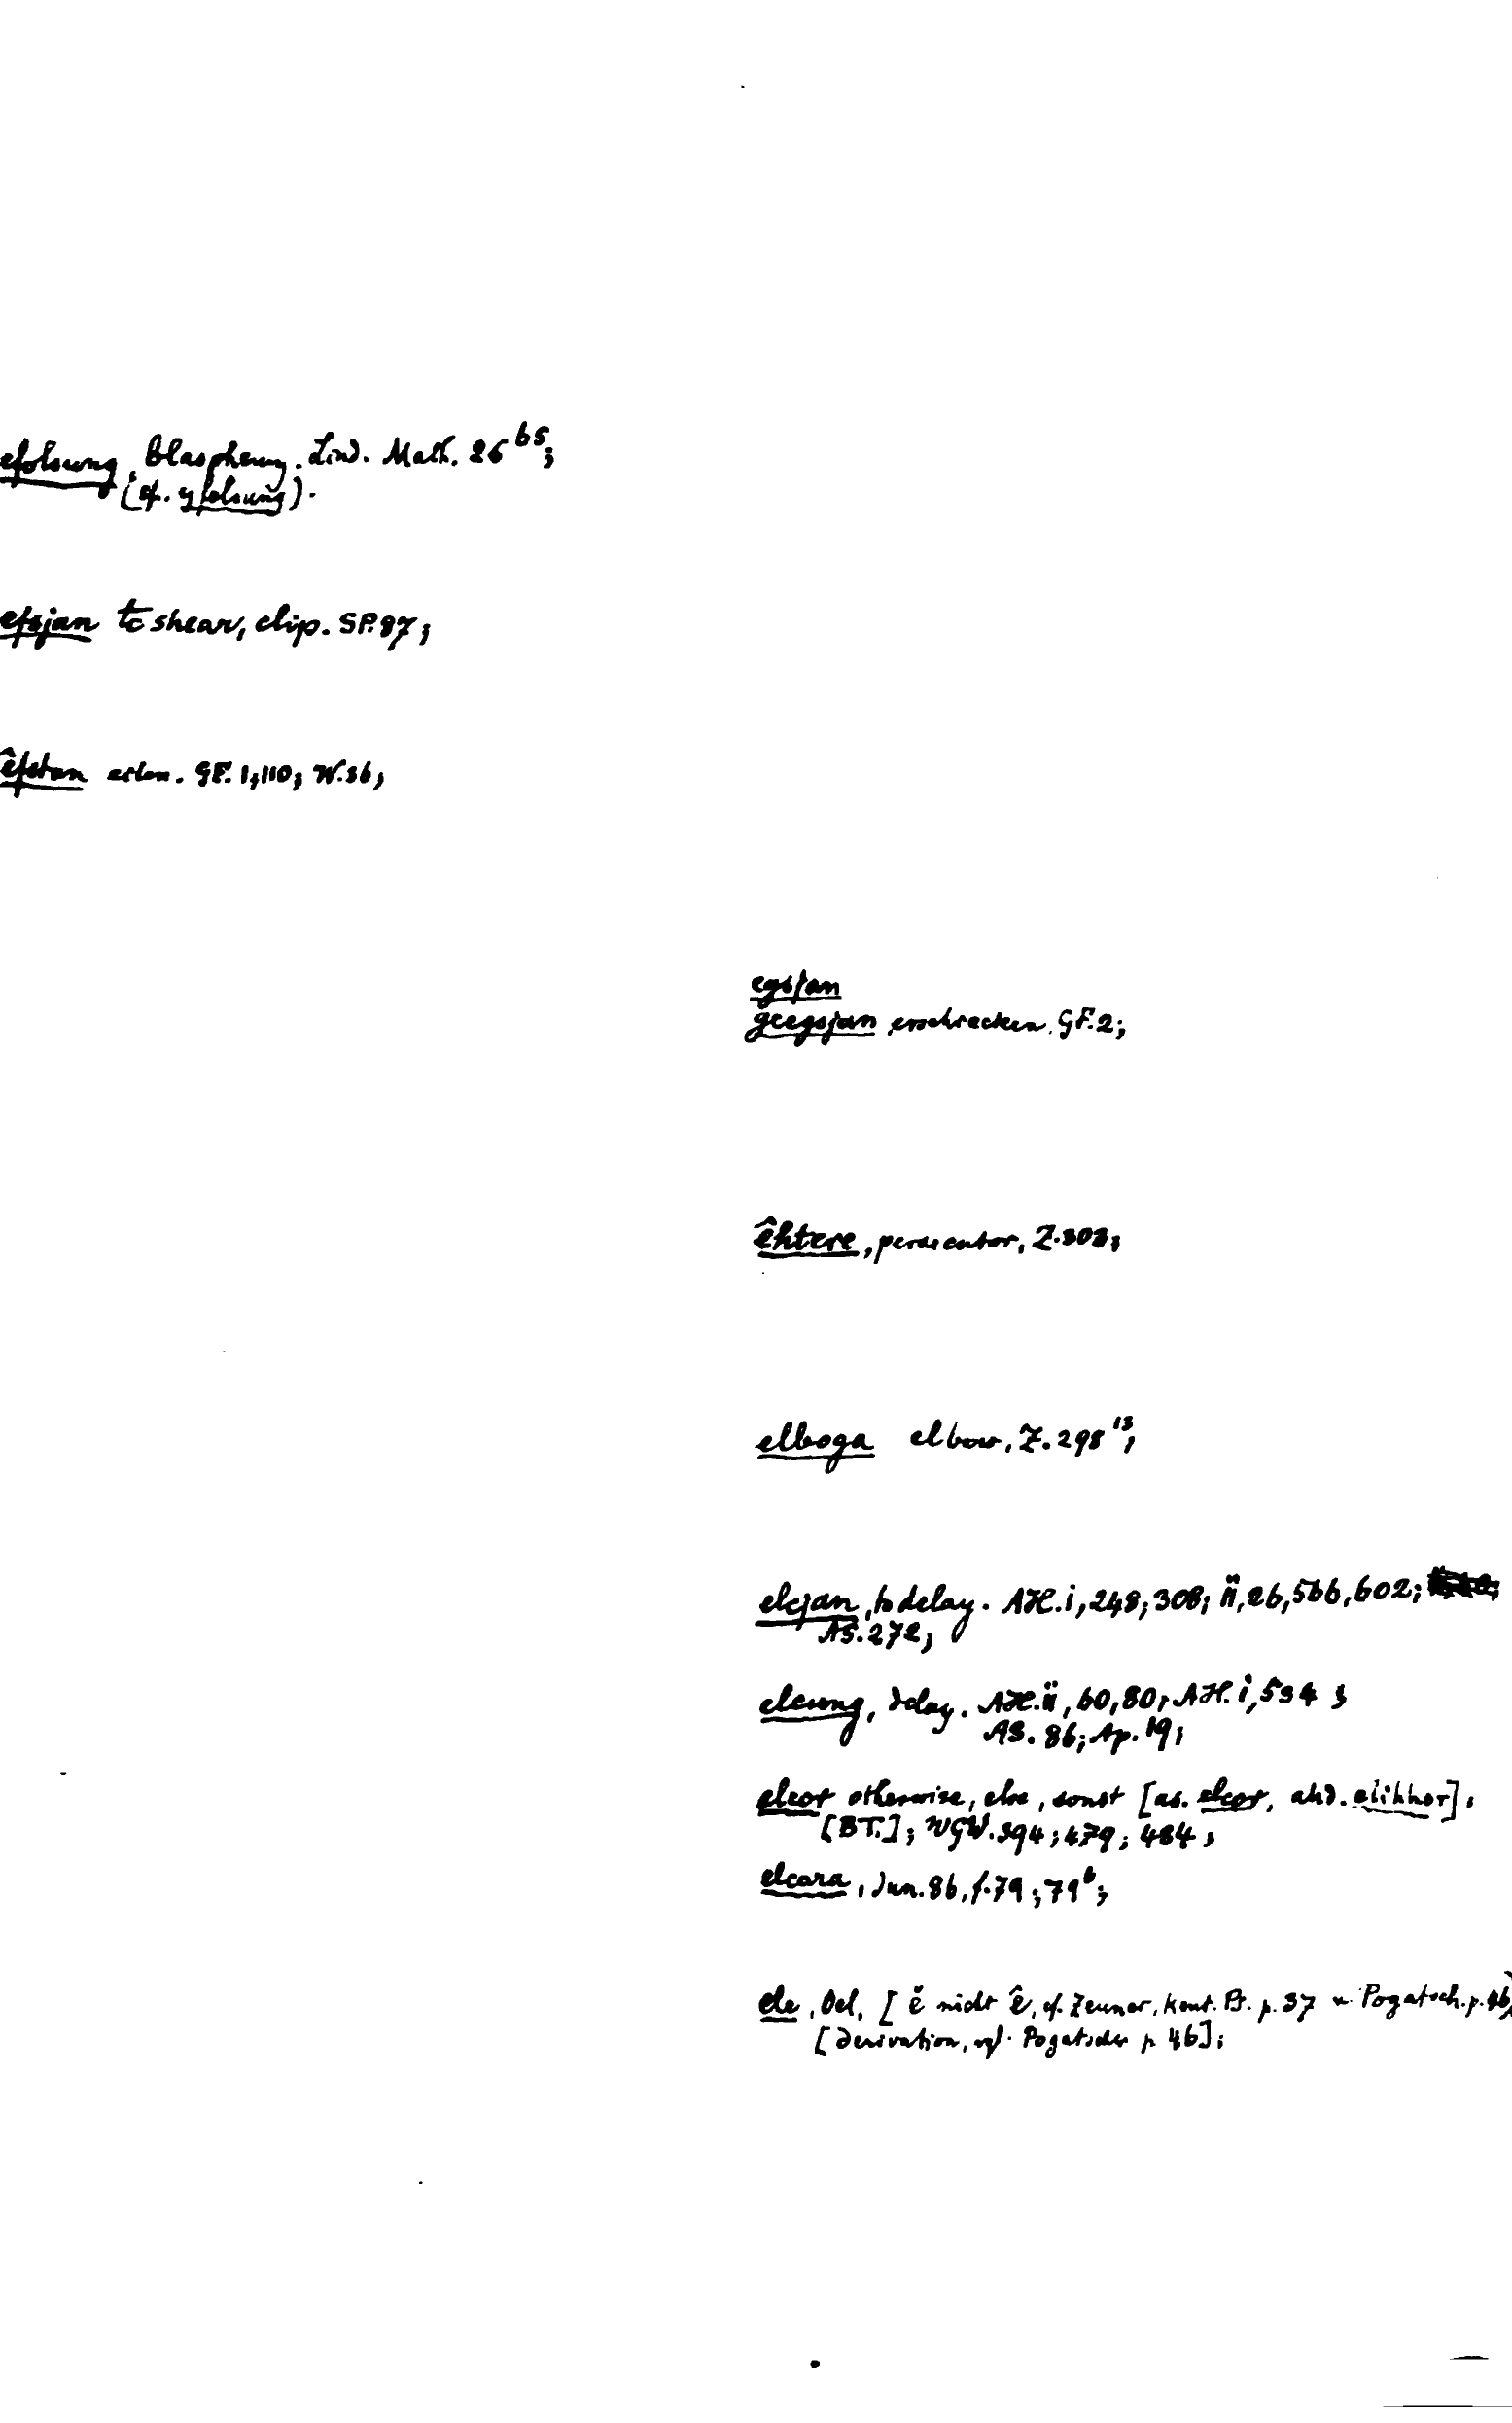 efolsung, blasphemy. Lind. Math. 26 65;
(cf. yfolsung).
efsjan to shear, clip. SP. 87;
êfstan eilen. GF. 1,110; W. 36;
egsjan
geegsjan erschrecken. GF. 2;
êhtere, persecutor, Z. 303;
elboga elbow, Z. 298 13;
elcjan, to delay. AH. i, 248; 308; ii, 26, 566, 602;
AS. 272;
elcung, delay. AH. ii, 60, 80; AH. i, 534;
AS. 86; Ap. 19;
elcor otherwise, else, sonst [as. elcor, ahd. elihhor];
[BT.]; WGW. 394; 479; 484;
elcora, Jun. 86, f. 79; 79b;
ele, Oel, [ĕ nicht ê, cf. Zeuner, Kent. Ps. p. 37 u. Pogatsch. p. 46]
[derivation, vgl. Pogatscher p 46];